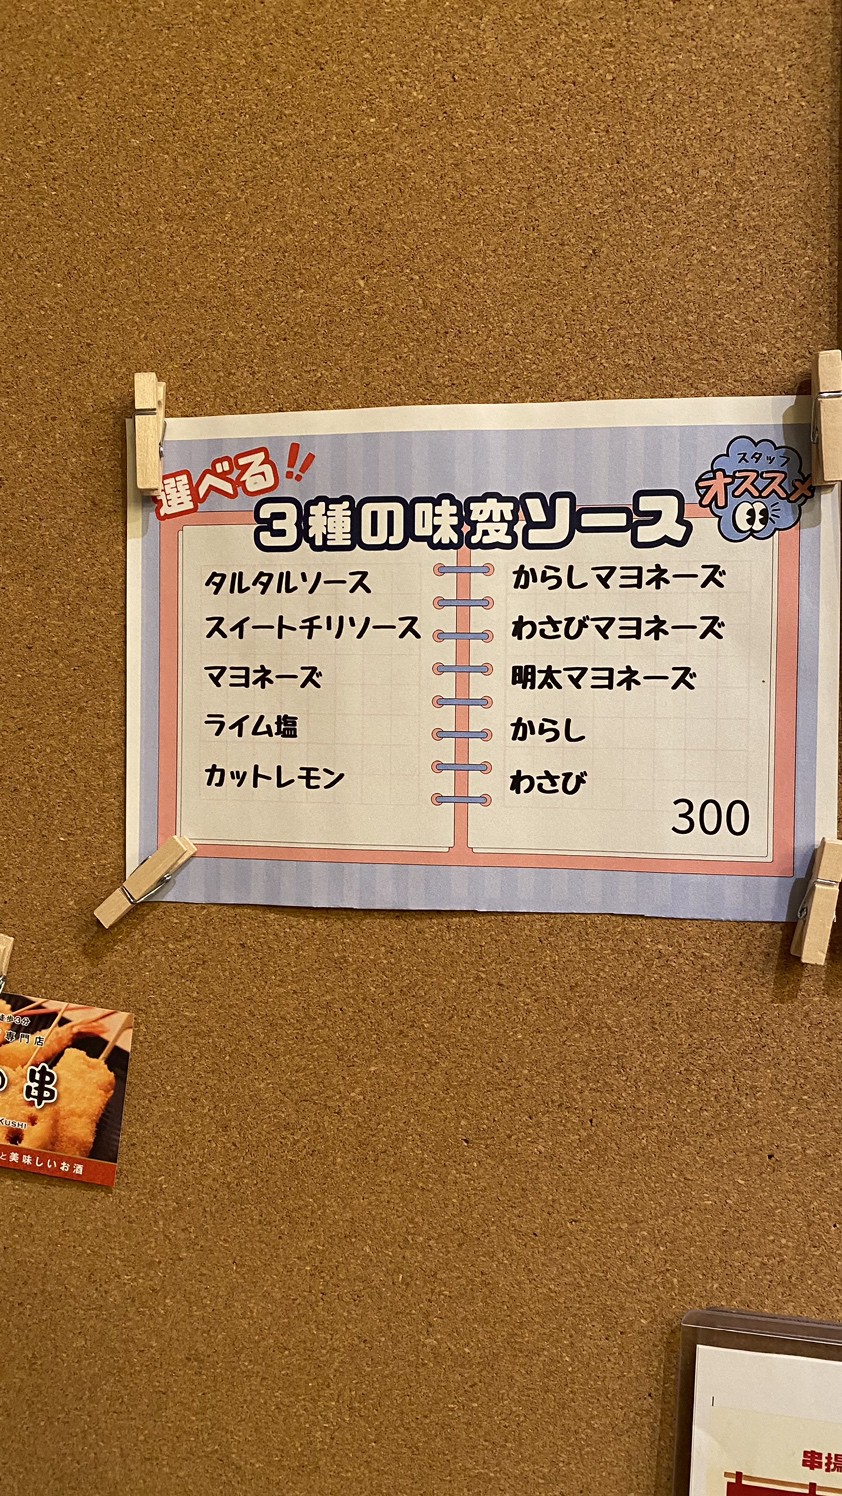 選べる!!
3種の味変ソース
スタッフ
オススメ
タルタルソース
スイートチリソース
マヨネーズ
ライム塩
カットレモン
からしマヨネーズ
わさびマヨネーズ
明太マヨネーズ
からし
わさび
300
徒歩3分
専門店
串
KUSHI
と美味しいお酒
串揚